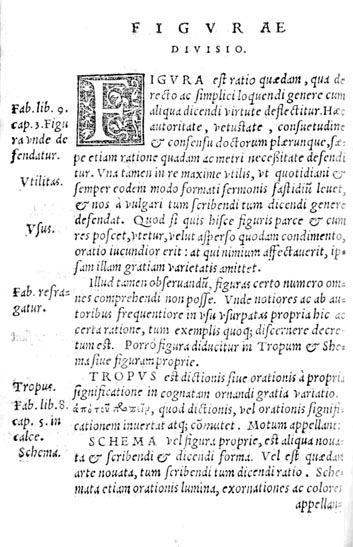 FIGVRAE
DIVISIO.
FIGVRA est ratio quædam, qua de
recto ac simplici loquendi genere cum
aliqua dicendi virtute deflectitur. Hæc
autoritate, vetustate, consuetudine
& consensu doctorum plærunque, sæ-
pe etiam ratione quadam ac metri neceßitate defendi
tur. Vna tamen in re maxime vtilis, vt quotidiani &
semper eodem modo formati sermonis fastidiũ leuet,
& nos à vulgari tum scribendi tum dicendi genere
defendat. Quod si quis hisce figuris parce & cum
res poscet, vtetur, velut asperso quodam condimento,
oratio iucundior erit: at qui nimium affectauerit, ip-
sam illam gratiam varietatis amittet.
Illud tamen obseruandũ, figuras certo numero om-
nes comprehendi non posse. Vnde notiores ac ab au-
toribus frequentiore in vsu vsurpatas propria hic ac
certa ratione, tum exemplis quoq; discernere decre-
tum est. Porrò figura diducitur in Tropum & Sche-
ma siue figuram proprie.
TROPVS est dictionis siue orationis à propria
significatione in cognatam ornandi gratia variatio.
ἀπὸ τοῦ τροπεῖν, quod dictionis, vel orationis signifi-
cationem inuertat atq; cõmutet. Motum appellant:
SCHEMA vel figura proprie, est aliqua noua-
ta & scribendi & dicendi forma. Vel est quædam
arte nouata, tum scribendi tum dicendi ratio. Sche-
mata etiam orationis lumina, exornationes ac colores
appellan-
Fab. lib. 9.
cap. 3. Figu
ra vnde de
fendatur.
Vtilitas.
Vsus.
Fab. refra-
gatur.
Tropus.
Fab. lib. 8.
cap. 5. in
calce.
Schema.